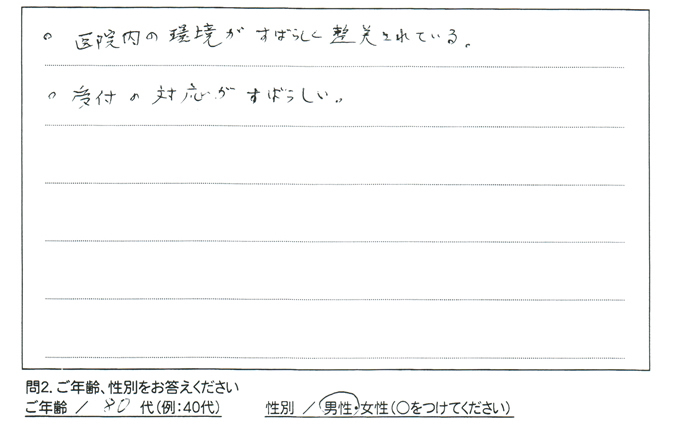 ○ 医院内の環境がすばらしく整美されている。
○ 受付の対応がすばらしい。
問2. ご年齢、性別をお答えください
ご年齢 / 80 代(例:40代) 性別 / 男性・女性(○をつけてください)